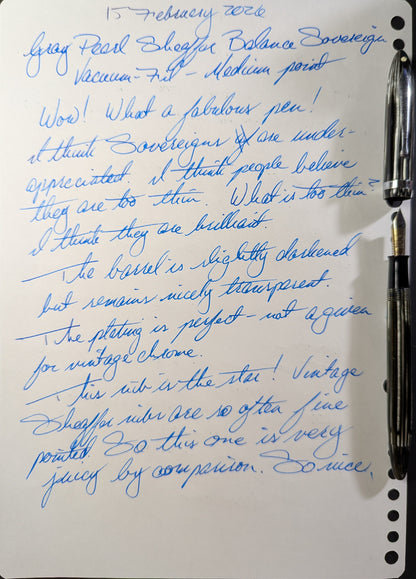 15 February 2026
Gray Pearl Sheaffer Balance Sovereign
Vacuum-Fil - Medium point
Wow! What a fabulous pen!
I think Sovereigns are under-
appreciated. I think people believe
they are too thin. What is too thin?
I think they are brilliant.
The barrel is slightly darkened
but remains nicely transparent.
The plating is perfect - not a given
for vintage chrome.
This nib is the star! Vintage
Sheaffer nibs are so often fine
pointed. So this one is very
juicy by comparison. So nice.